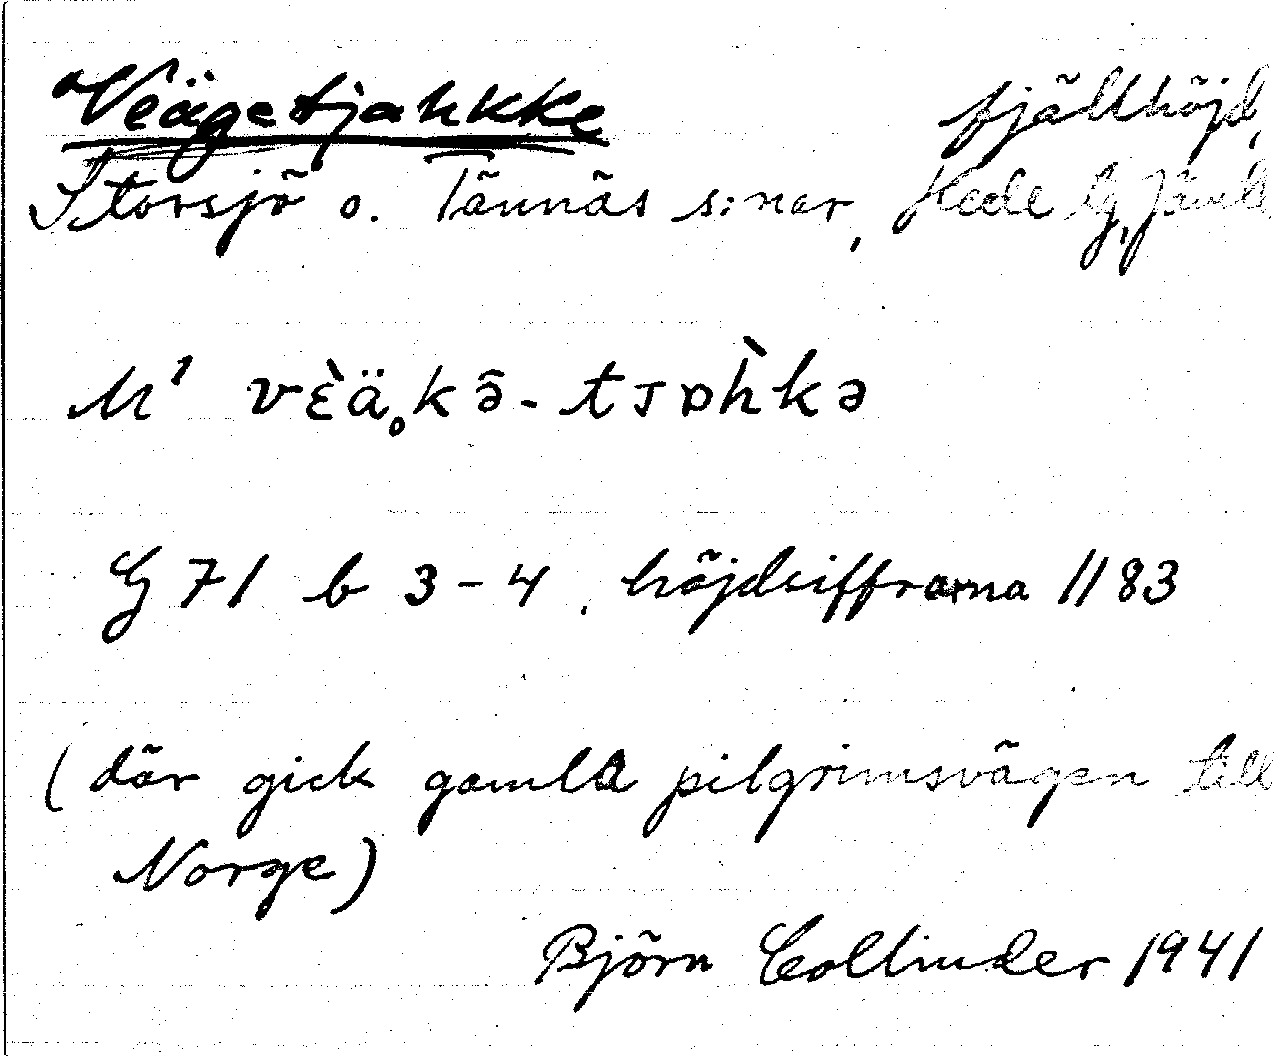 Veägetjahkke fjällhöjd,
Storsjö o. Tännäs s:nar, Hede tg, Jämtl
M¹ vɛ̀ḁ̈kə̄-tᴊɒh̀kə
G 71 b 3-4, höjdsiffrorna 1183
(där gick gamla pilgrimsvägen till
Norge)
Björn Collinder 1941